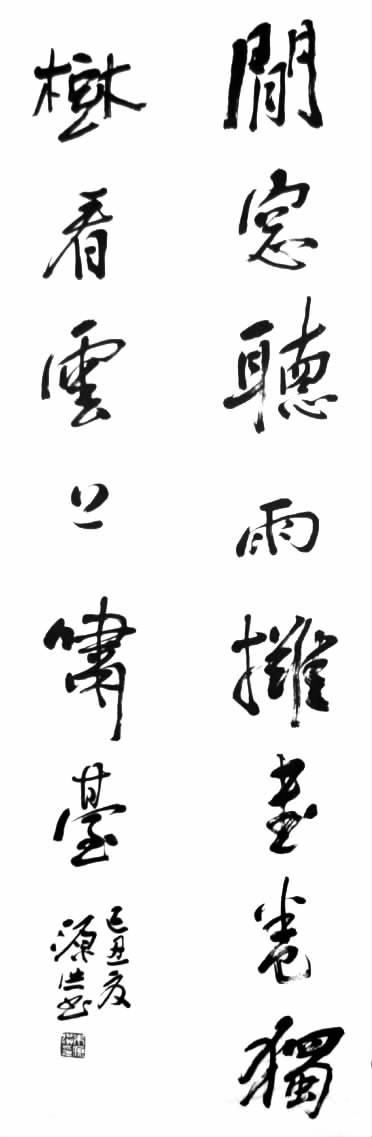 閒窓聽雨攤書卷獨
樹看雲上嘯臺
己丑夏
源洪書